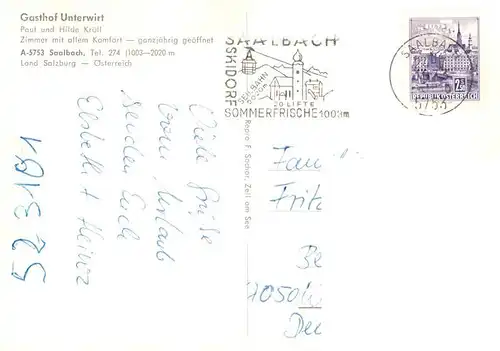 Gasthof Unterwirt
Paul und Hilde Kröll
Zimmer mit allem Komfort — ganzjährig geöffnet
A-5753 Saalbach, Tel. 274 (1003—2020 m
Land Salzburg — Österreich
SAALBACH
SKIDORF
SEILBAHN
20 LIFTE
SOMMERFRISCHE 1003m
SAALBACH
5753
REPUBLIK ÖSTERREICH
Repro F. Sochor, Zell am See
Viele Grüße
vom Urlaub
senden Euch
Elsbeth + Heinz
523191
Fam
Fritz
Be
7050
Deu